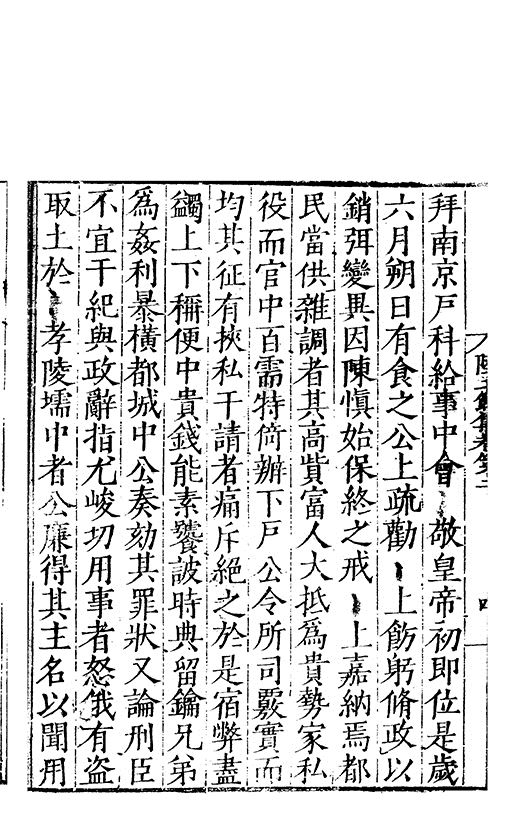 拜南京戶科給事中會敬皇帝初即位是歲
六月朔日有食之公上疏勸上飭躬脩政以
銷弭變異因陳愼始保終之戒上嘉納焉都
民當供雜調者其高貲富人大抵爲貴勢家私
役而官中百需特倚辦下戶公令所司覈實而
均其征有挾私干請者痛斥絕之於是宿弊盡
蠲上下稱便中貴錢能素饕詖時典留鑰兄弟
爲姦利暴橫都城中公奏劾其罪狀又論刑臣
不宜干紀與政辭指尤峻切用事者怒俄有盜
取土於孝陵壖中者公廉得其主名以聞用
卷第二
四